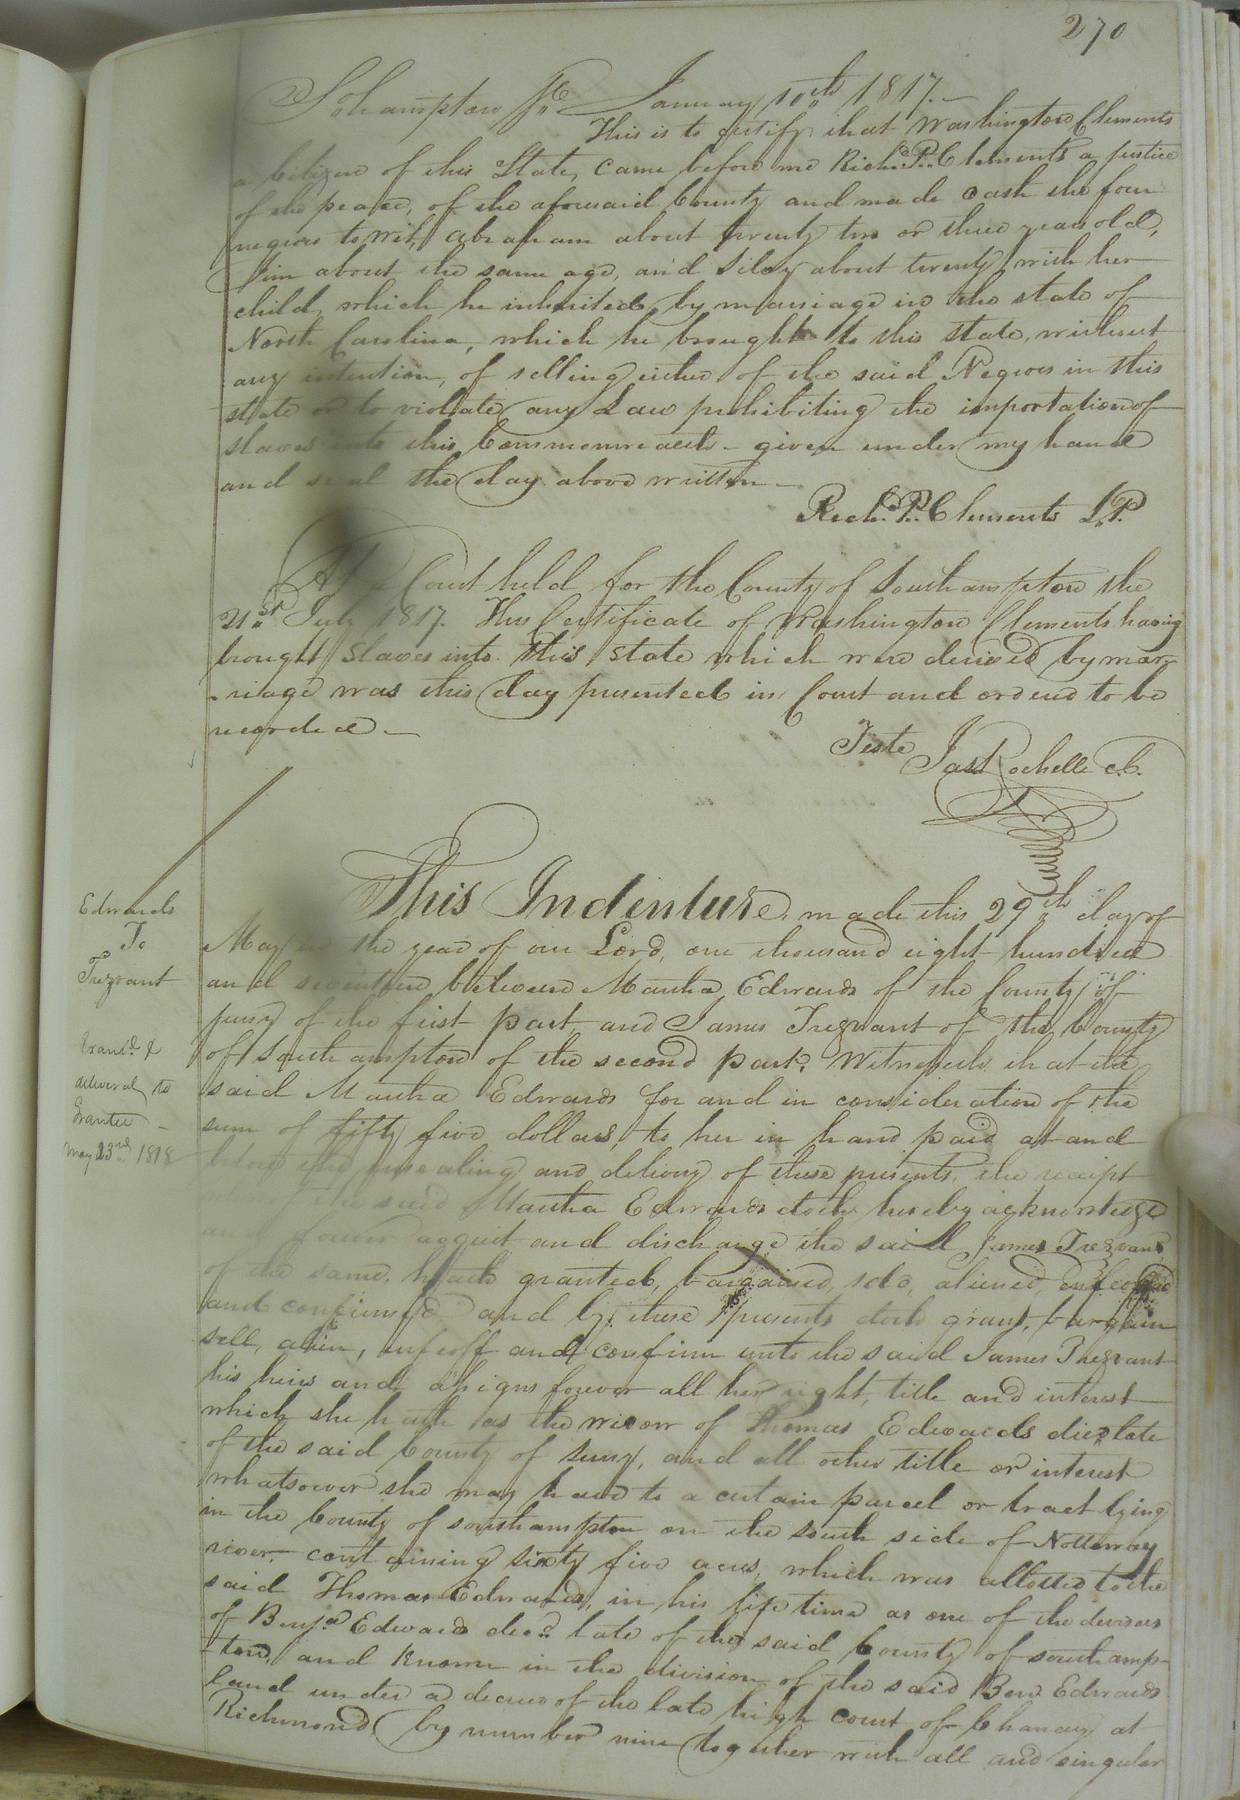 270
Sohampton Sc January 10th 1817.
This is to certify that Washington Clements
a Citizen of this State, came before me Richd. P. Clements a justice
of the peace, of the aforesaid County and made oath the four
negroes to wit, Abraham about twenty two or three years old,
Jim about the same age, and Silvy about twenty with her
child, which he inherited by marriage in the state of
North Carolina, which he brought to this state, without
any intention, of selling either of the said Negroes in this
state or to violate any Law prohibiting the importation of
slaves into this Commonwealth - given under my hand
and seal the day above written -
Richd. P. Clements J.P.
At a Court held for the County of Southampton the
21st July 1817. This Certificate of Washington Clements having
brought slaves into this state which were derived by mar-
-riage was this day presented in Court and ordered to be
recorded -
Teste Jas Rochelle C.C.
Edwards
To
Trezvant
Examd. &
delivered to
Grantee -
May 23rd 1818
This Indenture, made this 29th day of
May in the year of our Lord, one thousand eight hundred
and seventeen between Martha Edwards of the County of
Surry of the first part, and James Trezvant of the County
of Southampton of the second part, Witnesseth, that the
said Martha Edwards for and in consideration of the
sum of fifty five dollars, to her in hand paid at and
before the ensealing and delivery of these presents, the receipt
the said Martha Edwards doth hereby acknowledge
and forever acquit and discharge the said James Trezvant
of the same, hath granted, bargained, sold, aliened, enfeoffed
and confirmed and by these presents doth grant, bargain
sell, alien, enfeoff and confirm unto the said James Trezvant
his heirs and assigns forever all her right, title and interest
which she hath as the widow of Thomas Edwards decd. late
of the said County of Surry, and all other title or interest
whatsoever she may have to a certain parcel or tract lying
in the County of Southampton on the south side of Nottoway
river, containing sixty five acres, which was allotted to the
said Thomas Edwards, in his life time as one of the devisees
of Benja. Edwards decd. late of the said County of southamp-
-ton, and known in the division of the said Ben Edwards
land under a decree of the late high court of Chancery at
Richmond, by number nine together with all and singular